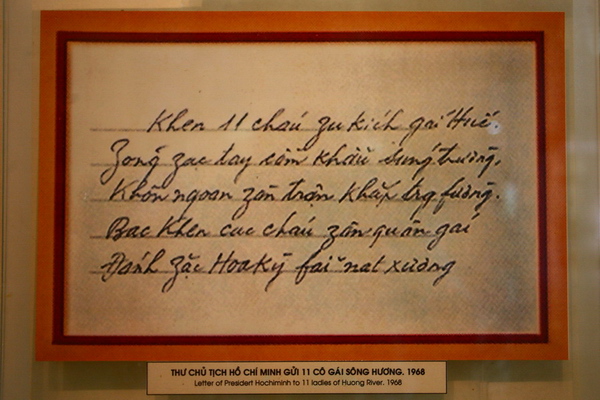 Khen 11 cháu zu kích gái Huế.
Zõng zạc tay cầm khẩu súng trường,
Khôn ngoan zàn trận khắp trg fường.
Bác khen các cháu zân quân gái
Đánh zặc Hoa Kỳ fải nát xương
THƯ CHỦ TỊCH HỒ CHÍ MINH GỬI 11 CÔ GÁI SÔNG HƯƠNG. 1968
Letter of Presidert Hochiminh to 11 ladies of Huong River. 1968